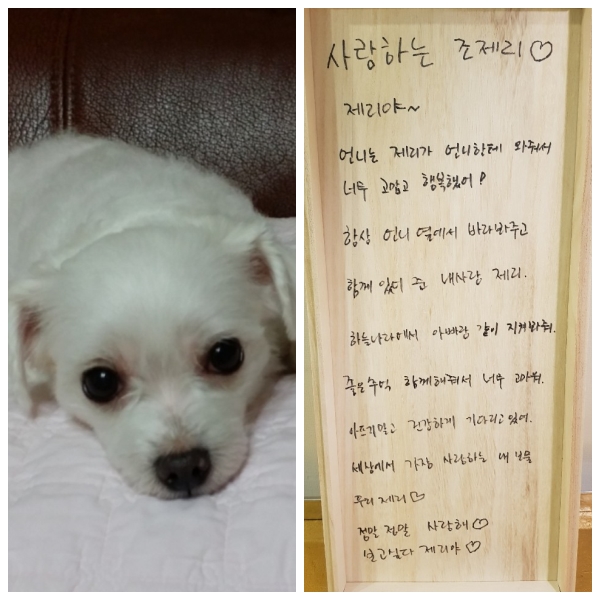 사랑하는 조제리♡
제리야~
언니는 제리가 언니한테 와줘서
너무 고맙고 행복했어!
항상 언니 옆에서 바라봐주고
함께 있어 준 내사랑 제리.
하늘나라에서 아빠랑 같이 지켜봐줘.
좋은추억 함께해줘서 너무 고마워.
아프지말고 건강하게 기다리고있어.
세상에서 가장 사랑하는 내 보물
우리 제리♡
정말 정말 사랑해♡
보고싶다 제리야♡